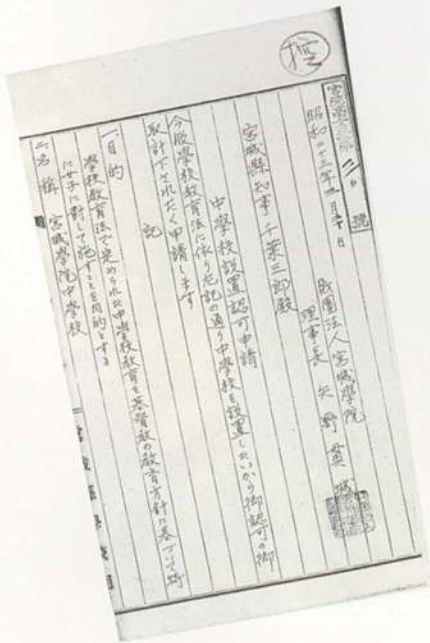 昭和二十三年 月 日
財團法人宮城學院
理事長 矢野貫城
宮城縣知事千葉三郎殿
中學校設置認可申請
今般學校教育法に依り左記の通り中學校を設置したいから御認可の御
取計下されたく申請します
記
一目的
學校教育法で定められた中學校教育を基督教の教育方針に基づいて
に女子に對して施すことを目的とする
二名稱 宮城學院中學校